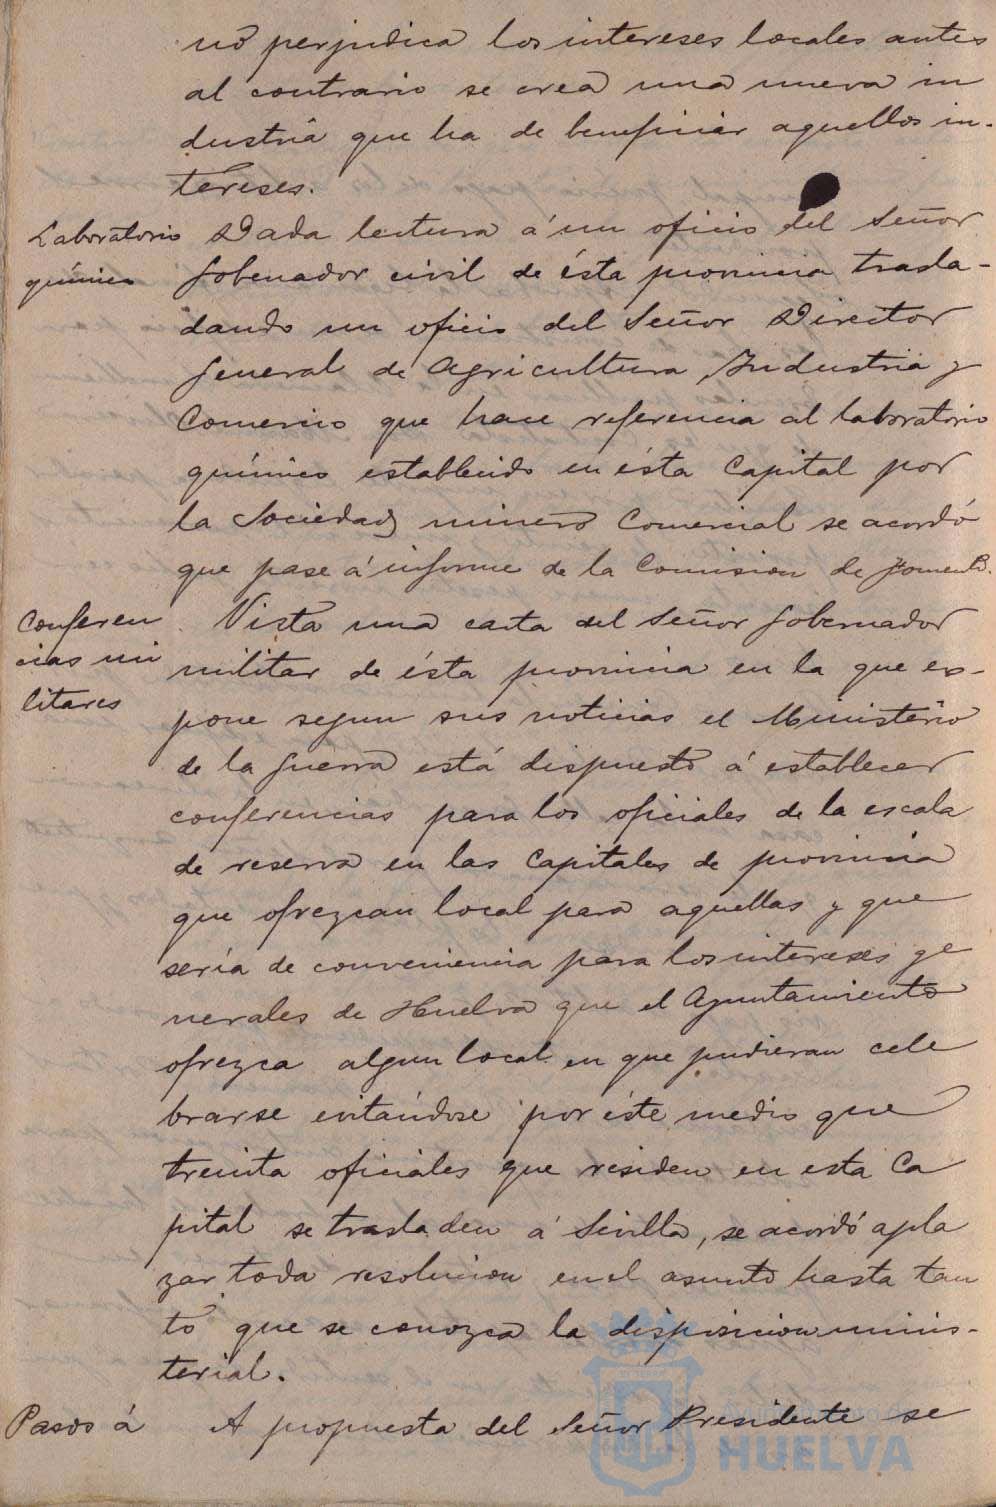 no perjudica los intereses locales antes
al contrario se crea una nueva in
dustria que ha de beneficiar aquellos in-
tereses.
Laboratorio
químico
Dada lectura á un oficio del Señor
Gobernador civil de ésta provincia trasla-
dando un oficio del Señor Director
General de Agricultura, Industria y
Comercio que hace referencia al laboratorio
químico establecido en ésta Capital por
la Sociedad minero Comercial se acordó
que pase á informe de la Comision de Fomento.
Conferen
cias mi
litares
Vista una carta del Señor Gobernador
militar de ésta provincia en la que ex-
pone segun sus noticias el Ministerio
de la Guerra está dispuesto á establecer
conferencias para los oficiales de la escala
de reserva en las Capitales de provincia
que ofrezcan local para aquellas y que
sería de conveniencia para los intereses ge
nerales de Huelva que el Ayuntamiento
ofrezca algun local en que pudieran cele
brarse evitándose por éste medio que
treinta oficiales que residen en esta Ca
pital se trasladen á Sevilla, se acordó apla
zar toda resolucion en el asunto hasta tan
to que se conozca la disposicion minis-
terial.
Pasos á
A propuesta del Señor Presidente se
Ayuntamiento de
HUELVA